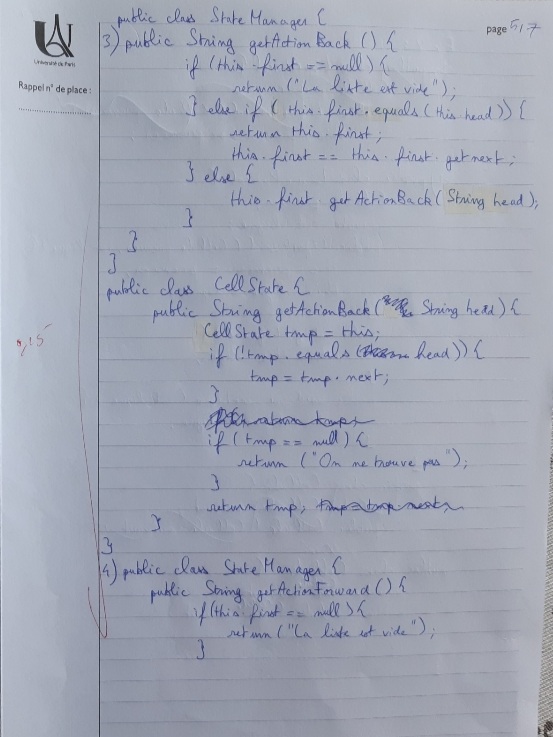 public class StateManager {
page 5/7
3) public String getActionBack () {
Université de Paris
if (this.first == null) {
Rappel n° de place :
return ("La liste est vide");
} else if ( this.first.equals(this head)) {
return this.first;
this.first == this.first.getnext;
} else {
this.first getActionBack( String head);
}
}
}
public class CellState {
public String getActionBack( String head) {
CellState tmp = this;
0,25
if (!tmp.equals( head)) {
tmp = tmp.next;
}
if (tmp == null) {
return ("On ne trouve pas");
}
return tmp;
}
}
4) public class StateManager {
public String getActionForward () {
if (this first == null) {
return ("La liste est vide");
}